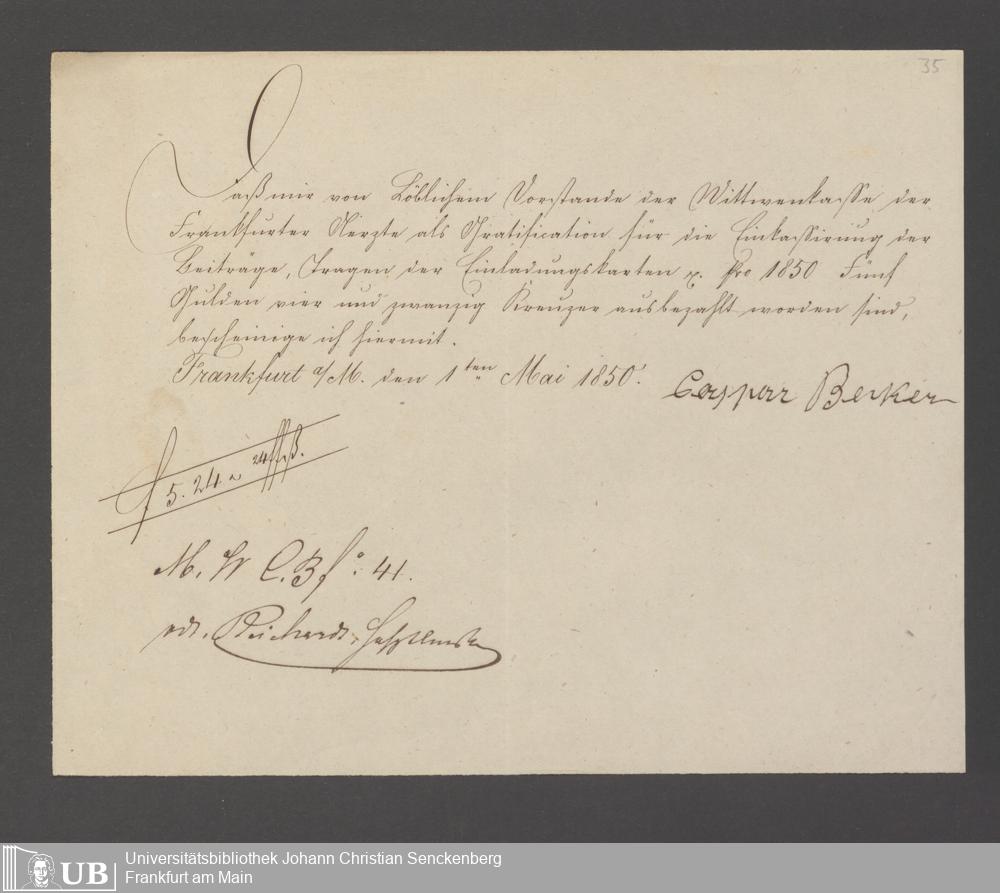 35
Daß mir von Löblichem Vorstande der Wittwenkasse der
Frankfurter Aerzte als Gratification für die Einkassirung der
Beiträge, Tragen der Einladungskarten &. pro 1850 Fünf
Gulden vier und zwanzig Kreuzer ausbezahlt worden sind,
bescheinige ich hiermit.
Frankfurt a/M. den 1ten Mai 1850.
Caspar Becker
f 5. 24. 24
M. W C. B fo: 41.
vdt. Reichard,
Universitätsbibliothek Johann Christian Senckenberg
Frankfurt am Main
UB